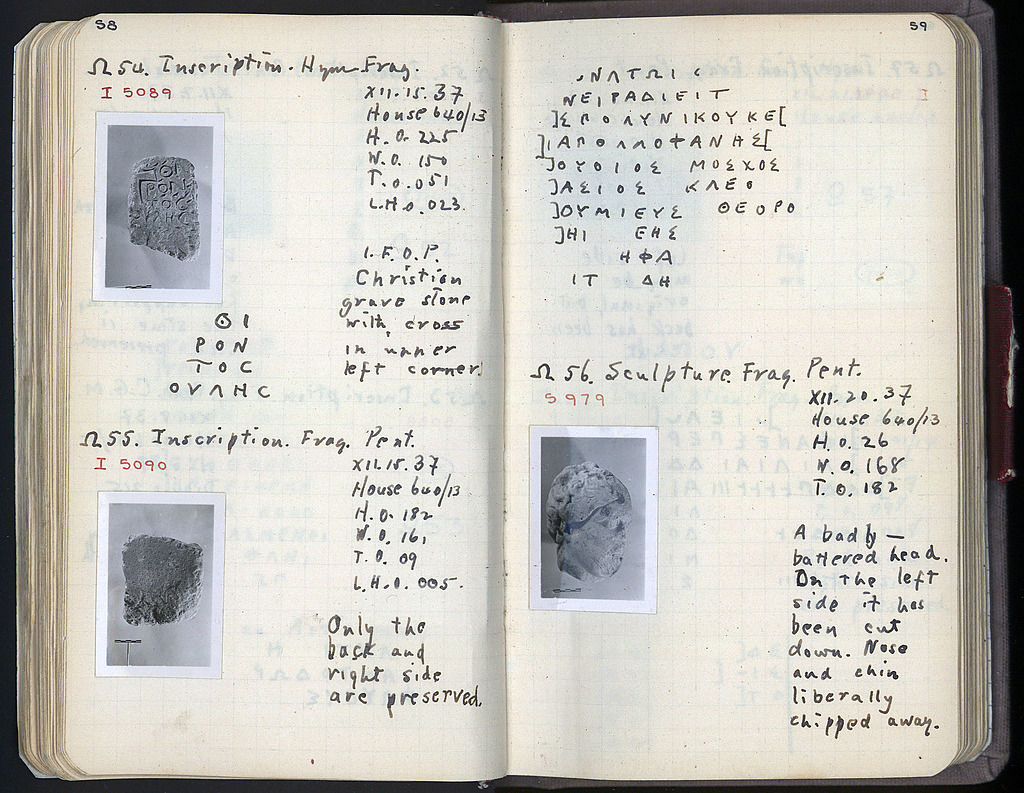 58
Ω 54. Inscription. Hym. Frag.
I 5089
XII.15.37
House 640/13
H. 0.225
W. 0.150
T. 0.051
L.H. 0.023
I.F.O.P.
Christian
grave stone
with cross
in upper
left corner.
ΘΙ
ΡΟΝ
ΤΟC
ΟΥΛΗC
Ω 55. Inscription. Frag. Pent.
I 5090
XII.15.37
House 640/13
H. 0.182
W. 0.161
T. 0.09
L.H. 0.005
Only the
back and
right side
are preserved.
59
ΝΛΤΩΙ
ΝΕΙΡΑΔΙΕΙΤ
]Σ ΠΟΛΥΝΙΚΟΥ ΚΕ[
]ΙΑΠΟΛΛΟΦΑΝΗΣ[
]ΟΥΟΙΟΣ ΜΟΣΧΟΣ
]ΑΣΙΟΣ ΚΛΕΟ
]ΟΥΜΙΕΥΣ ΘΕΟΡΟ
]ΗΙ ΕΗΣ
ΗΦΑ
ΙΤ ΔΗ
Ω 56. Sculpture. Frag. Pent.
S 979
XII.20.37
House 640/13
H. 0.26
W. 0.168
T. 0.182
A badly—
battered head.
On the left
side it has
been cut
down. Nose
and chin
liberally
chipped away.